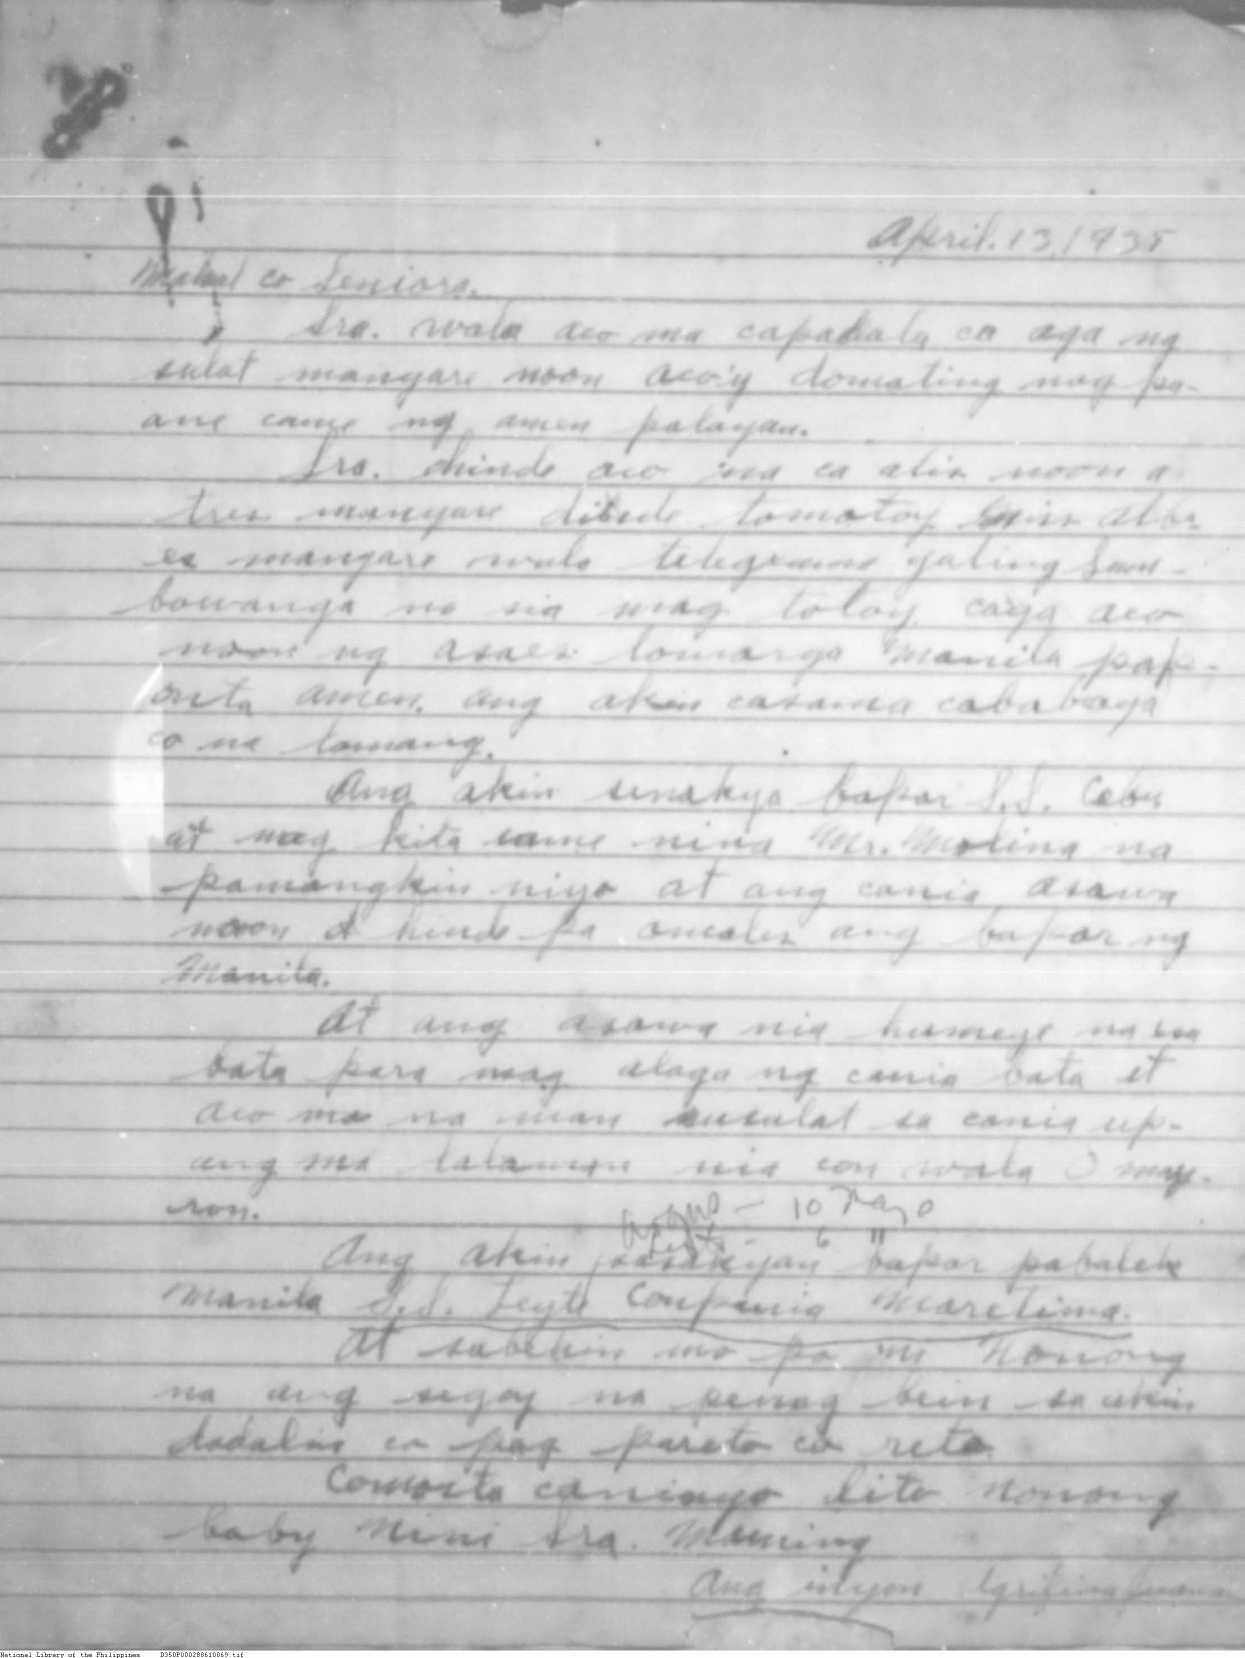 April. 13, 1935
Mahal co Seniora.
Sra. wala aco ma capadala ca aga ng
sulat mangare noon aco'y domating nag pa-
ane came ng amen palayan.
Sra. ahinde aco na ca alis noon a
tres mangare dihinde tomotoy Miss Albr
es mangare wala telegrama galing Sam-
bowanga na sia mag toloy caya aco
noon ng asaes lomarga Manila pap-
onta amen. ang akin casama cababaya
co na lamang.
Ang akin senakya bapor S.S. Cebu
at mag kita came nina Mr. Molina na
pamangkin niyo at ang cania asawa
noon d hinde pa omales ang bapor ng
Manila.
At ang asawa nia humege na isa
bata para mag alaga ng cania bata at
aco ma na man susulat sa cania up-
ang ma lalaman nia con wala O may-
ron.
10 Mayo
6 "
Ang akin sasakyan bapor pabalek
Manila S.S. Leyte Compania Maretima.
At sabihin mo pa ni Nonong
na ang segay na penag bein sa akin
dadalin co pag pareto co reto.
Comosta caninyo Lito Nonong
baby Nini Sra. Maming
Ang inyon